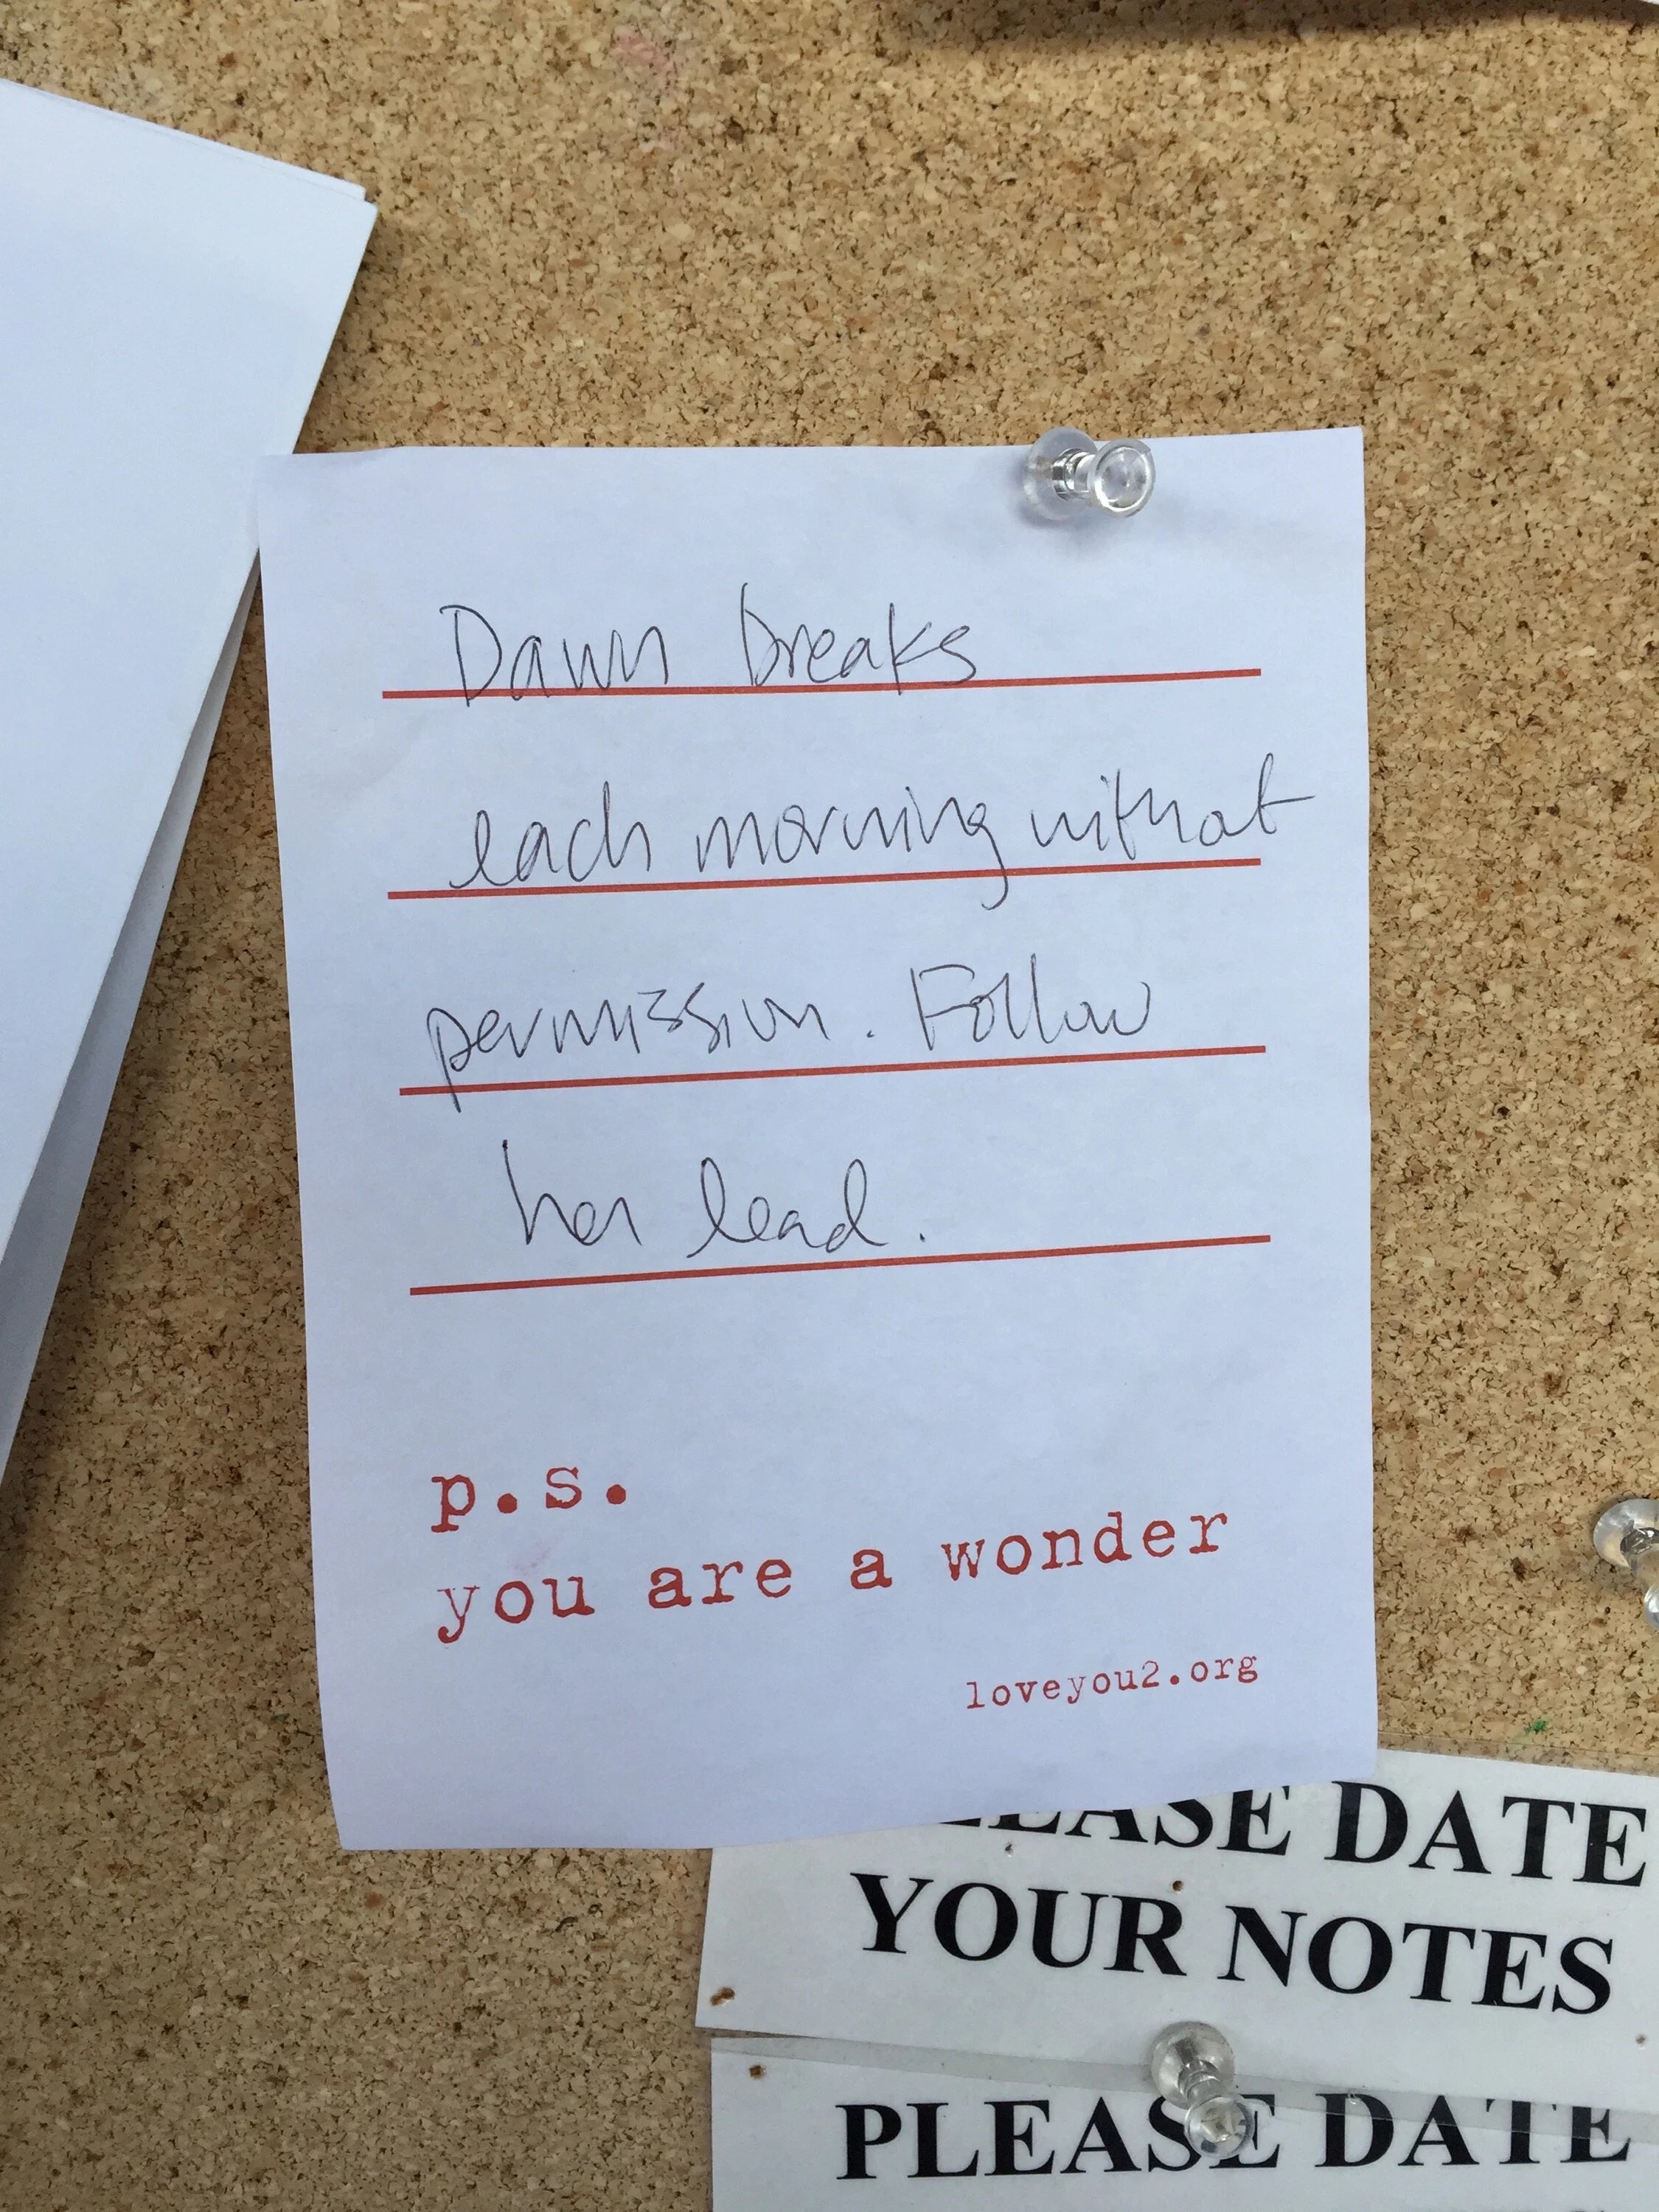 Dawn breaks
each morning without
permission. Follow
her lead.
p.s.
you are a wonder
loveyou2.org
PLEASE DATE
YOUR NOTES
PLEASE DATE